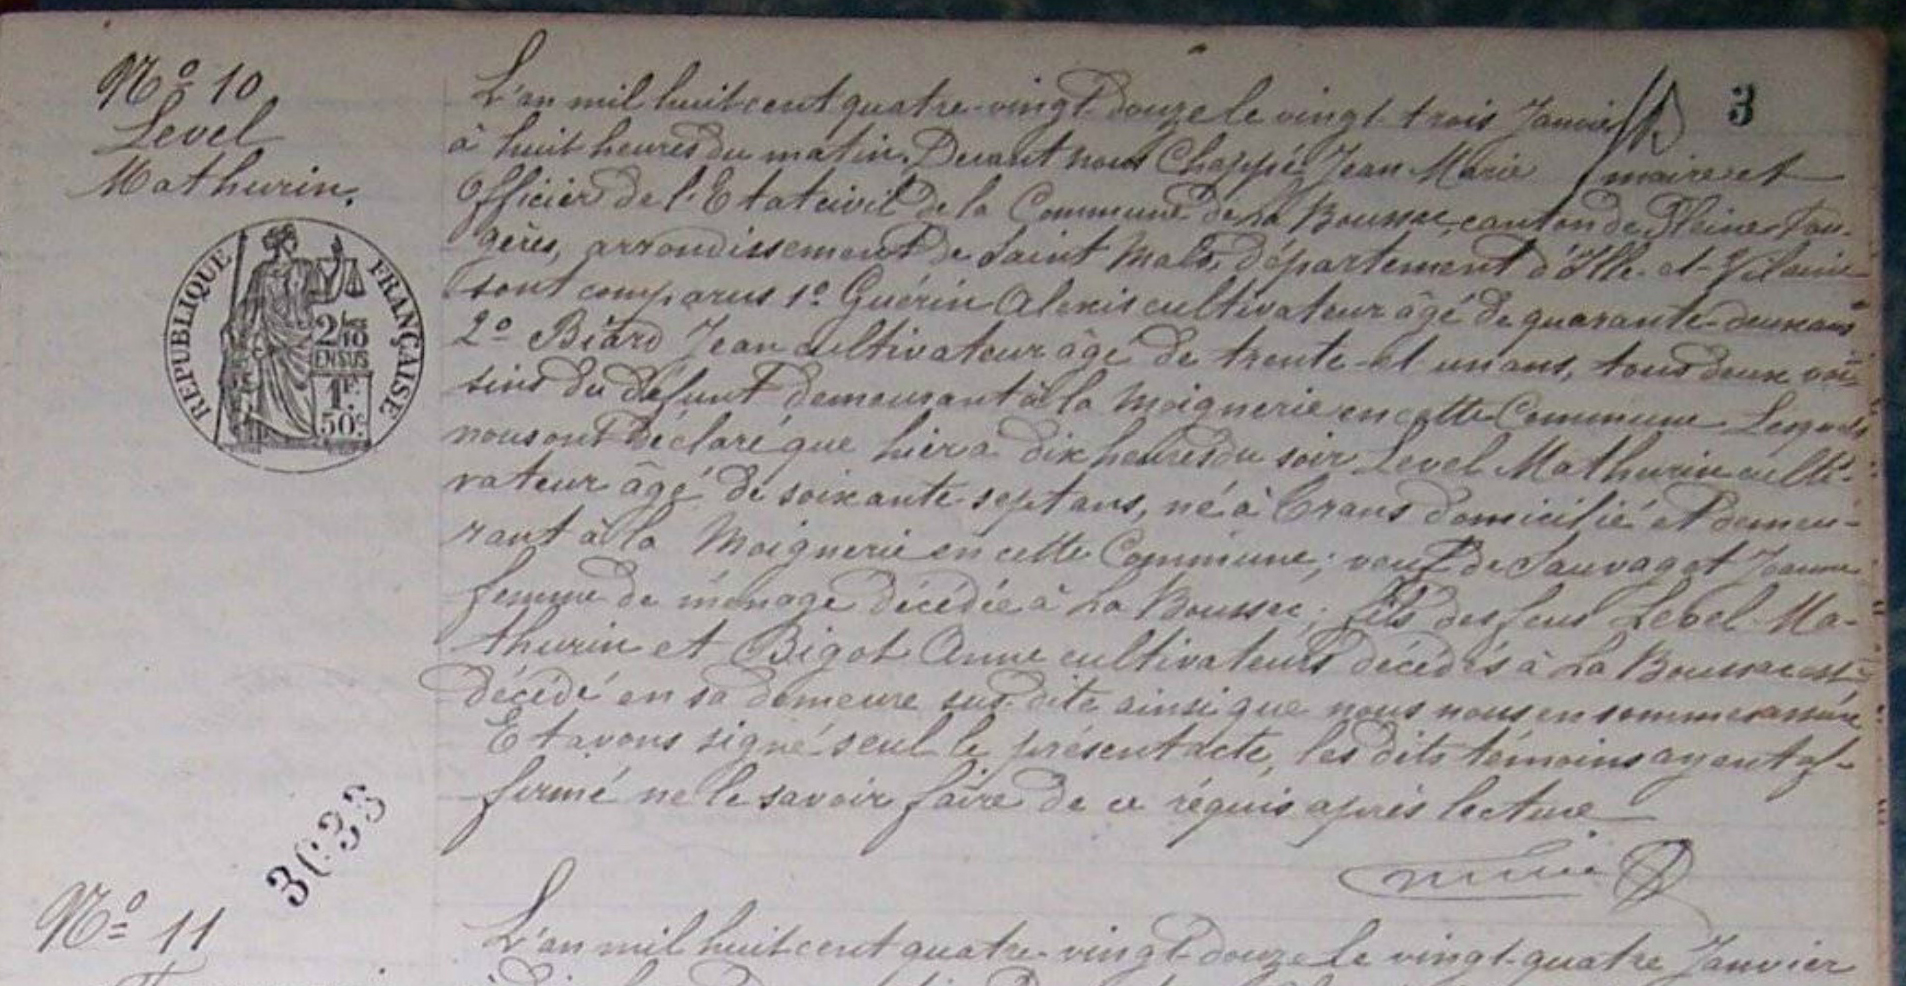 3
Nº 10
Level
Mathurin.
L'an mil huit cent quatre-vingt douze le vingt-trois Janvier
à huit heures du matin, Devant nous Chappé Jean Marie maire et
Officier de l'Etat civil de la Commune de La Boussac, canton de Pleine-Fou-
gères, arrondissement de Saint Malo, département d'Ille-et-Vilaine
sont comparus 1º Guérin Alexis cultivateur âgé de quarante-deux ans
2º Biard Jean cultivateur âgé de trente-et un ans, tous deux voi-
sins du défunt demeurant à la Moignerie en cette Commune Lesquels
nous ont déclaré que hier à dix heures du soir Level Mathurin culti-
vateur âgé de soixante-sept ans, né à Trans domicilié et demeu-
rant à la Moignerie en cette Commune; veuf de Sauvagot Jeanne
femme de ménage décédée à La Boussac; fils des feus Level Ma-
thurin et Bigot Anne cultivateurs décédés à La Boussac est
décédé en sa demeure sus-dite ainsi que nous nous en sommes assuré
Et avons signé seul le présent acte, les dits témoins ayant af-
firmé ne le savoir faire de ce réquis après lecture
REPUBLIQUE FRANÇAISE
2/10
EN SUS
1F
50c
3033
Nº 11
L'an mil huit cent quatre-vingt-douze le vingt-quatre Janvier